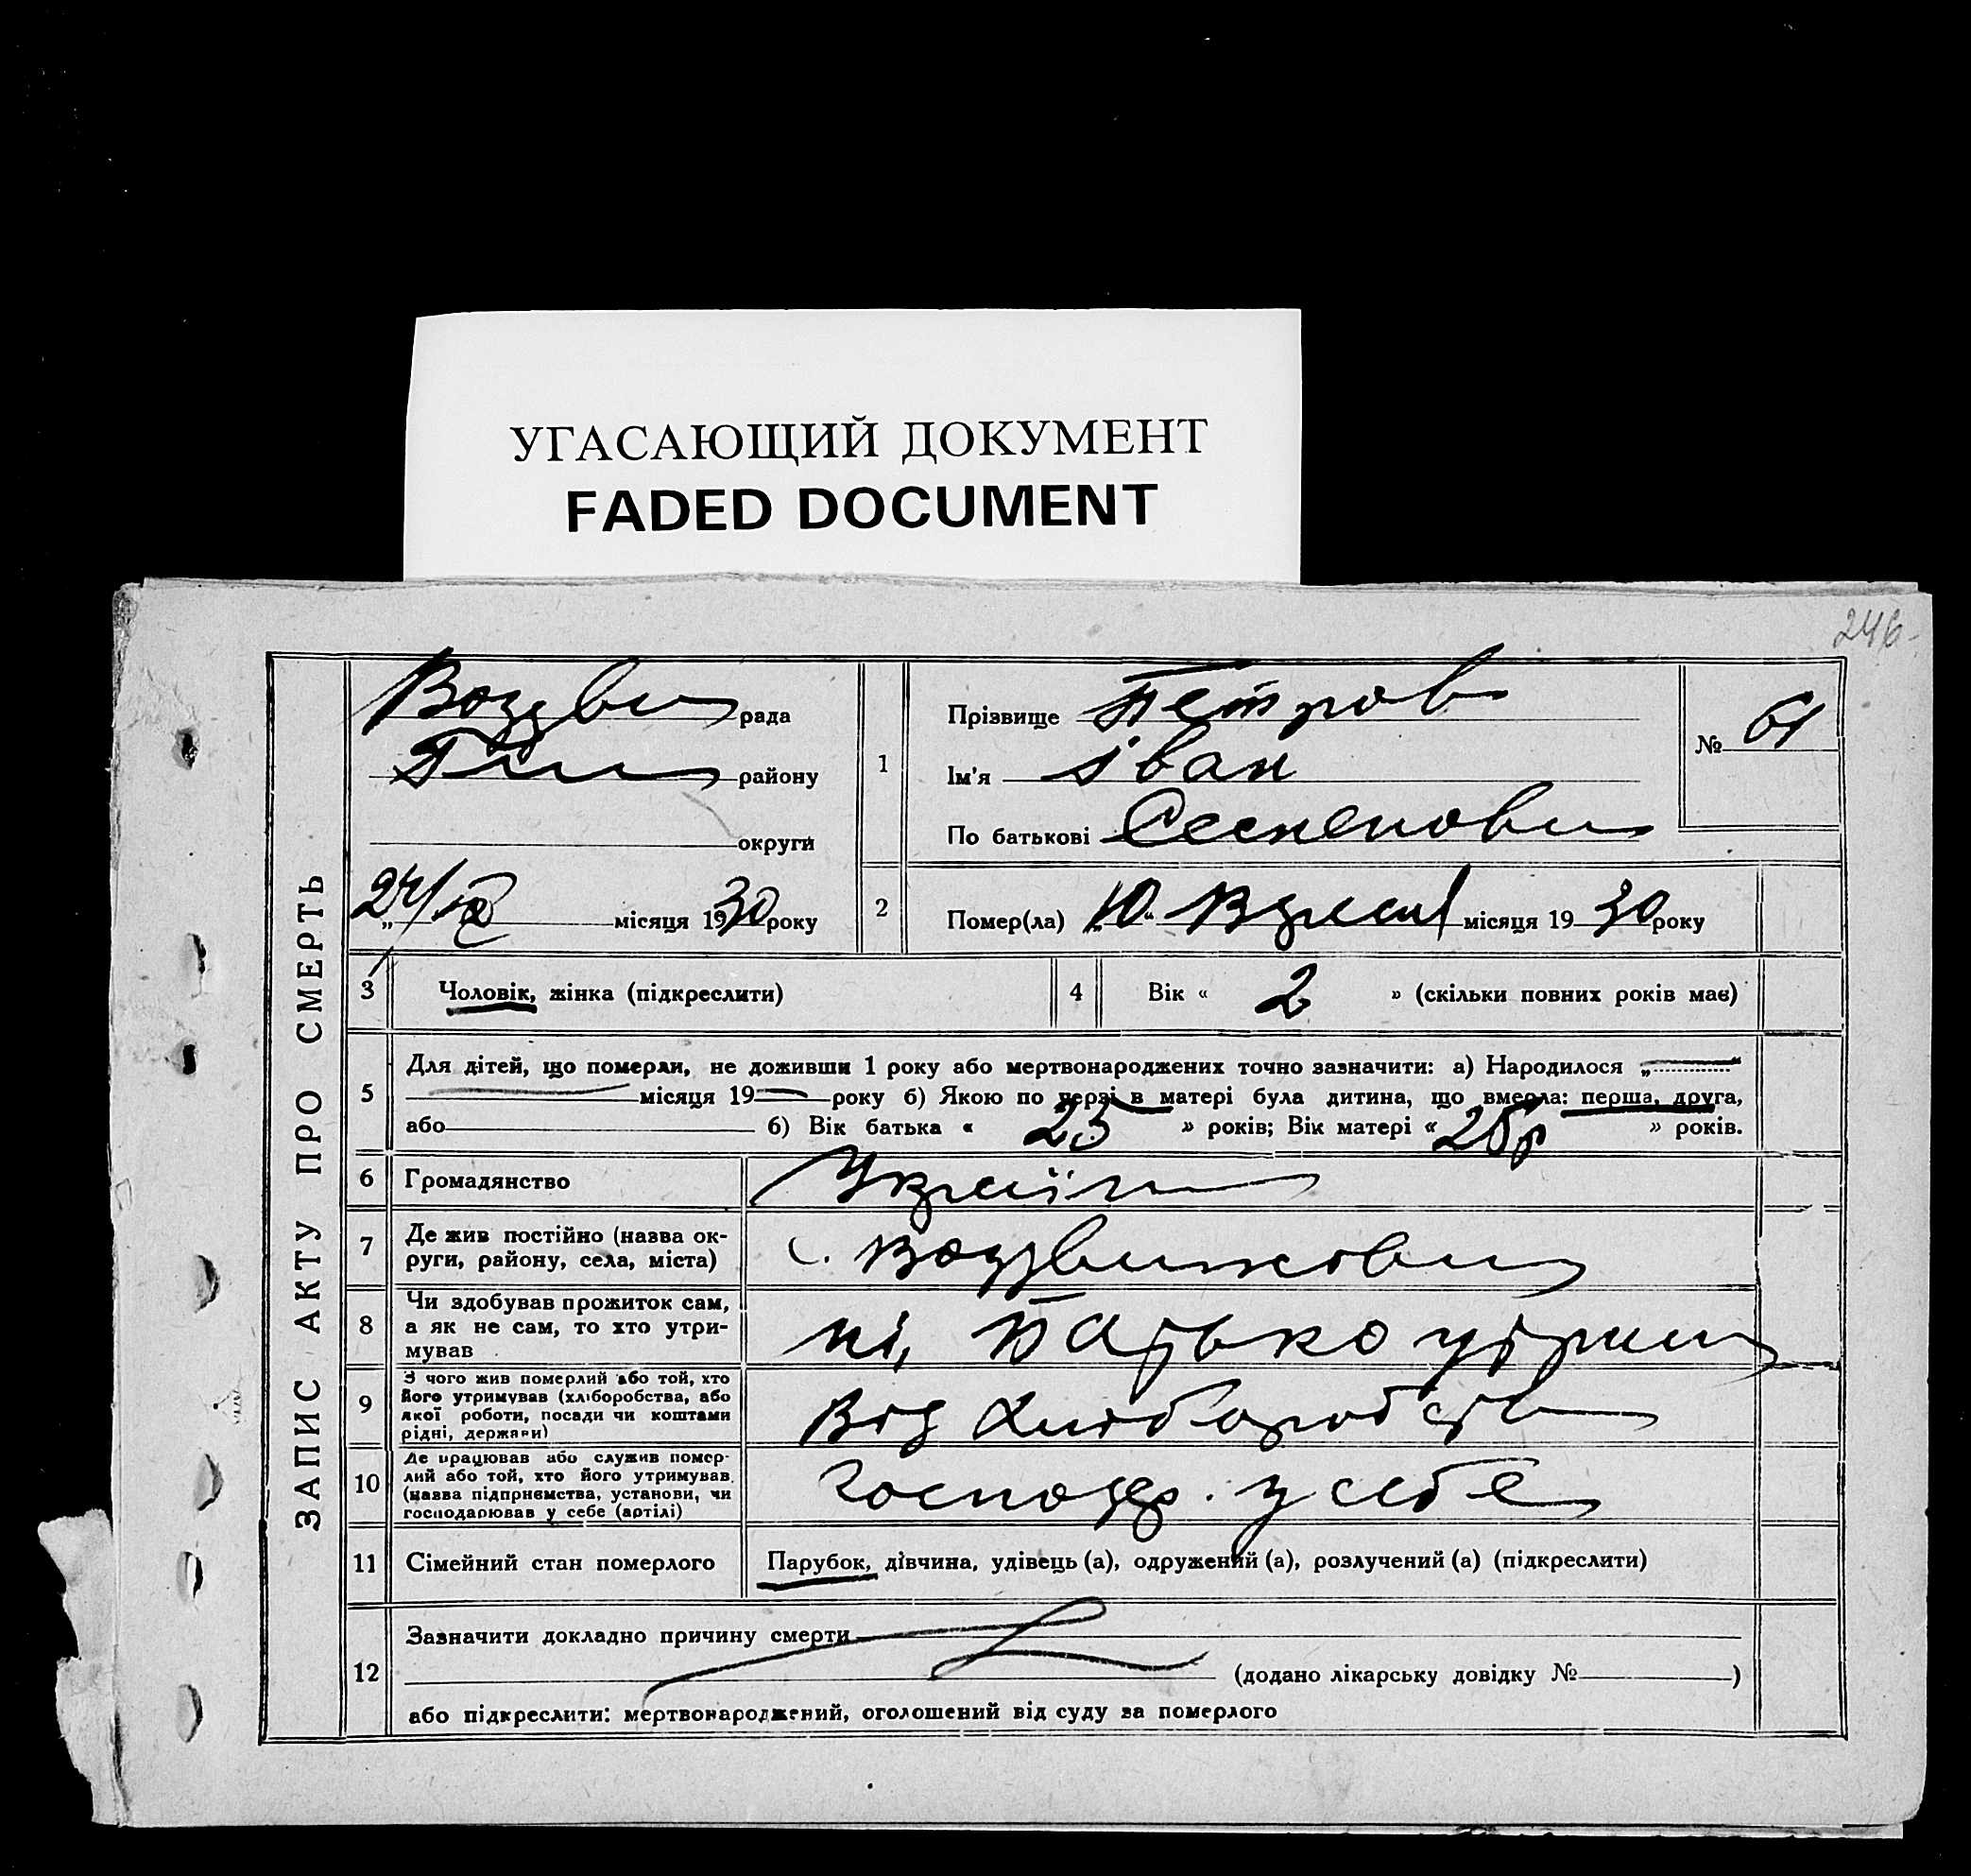 УГАСАЮЩИЙ ДОКУМЕНТ
FADED DOCUMENT
246
ЗАПИС АКТУ ПРО СМЕРТЬ
Воздви рада
району
округи
24/IX місяця 1930 року
1
Прізвище Петров
Ім'я Іван
По батькові Семенови
№ 61
2
Помер(ла) „10“ Вересня місяця 1930 року
3
Чоловік, жінка (підкреслити)
4
Вік « 2 » (скільки повних років має)
5
Для дітей, що померли, не доживши 1 року або мертвонароджених точно зазначити: а) Народилося „
місяця 19 року б) Якою по черзі в матері була дитина, що вмерла: перша, друга,
або б) Вік батька « 25 » років; Вік матері « 25 р » років.
6
Громадянство
Україн
7
Де жив постійно (назва ок-
руги, району, села, міста)
с. Воздвижовки
8
Чи здобував прожиток сам,
а як не сам, то хто утри-
мував
ні, батько утрим
9
З чого жив померлий або той, хто
його утримував (хліборобства, або
якої роботи, посади чи коштами
рідні, держави)
Від хліборобств
10
Де працював або служив помер-
лий або той, хто його утримував
(назва підприємства, установи, чи
господарював у себе (артілі)
господар. у себе
11
Сімейний стан померлого
Парубок, дівчина, удівець (а), одружений (а), розлучений (а) (підкреслити)
12
Зазначити докладно причину смерти
(додано лікарську довідку № )
або підкреслити: мертвонароджений, оголошений від суду за померлого